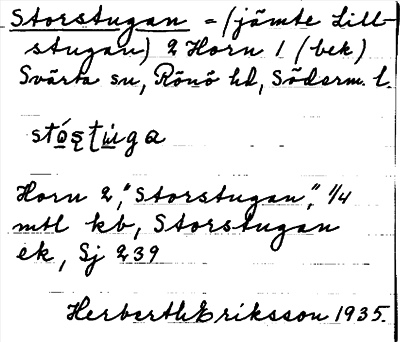 Storstugan = (jämte Lill-
stugan) 2 Horn 1 (bek)
Svärta sn, Rönö hd, Söderm. l.
Horn 2, "Storstugan", 1/4
mtl kb, Storstugan
ek, Sj 239
Herberth Eriksson 1935.